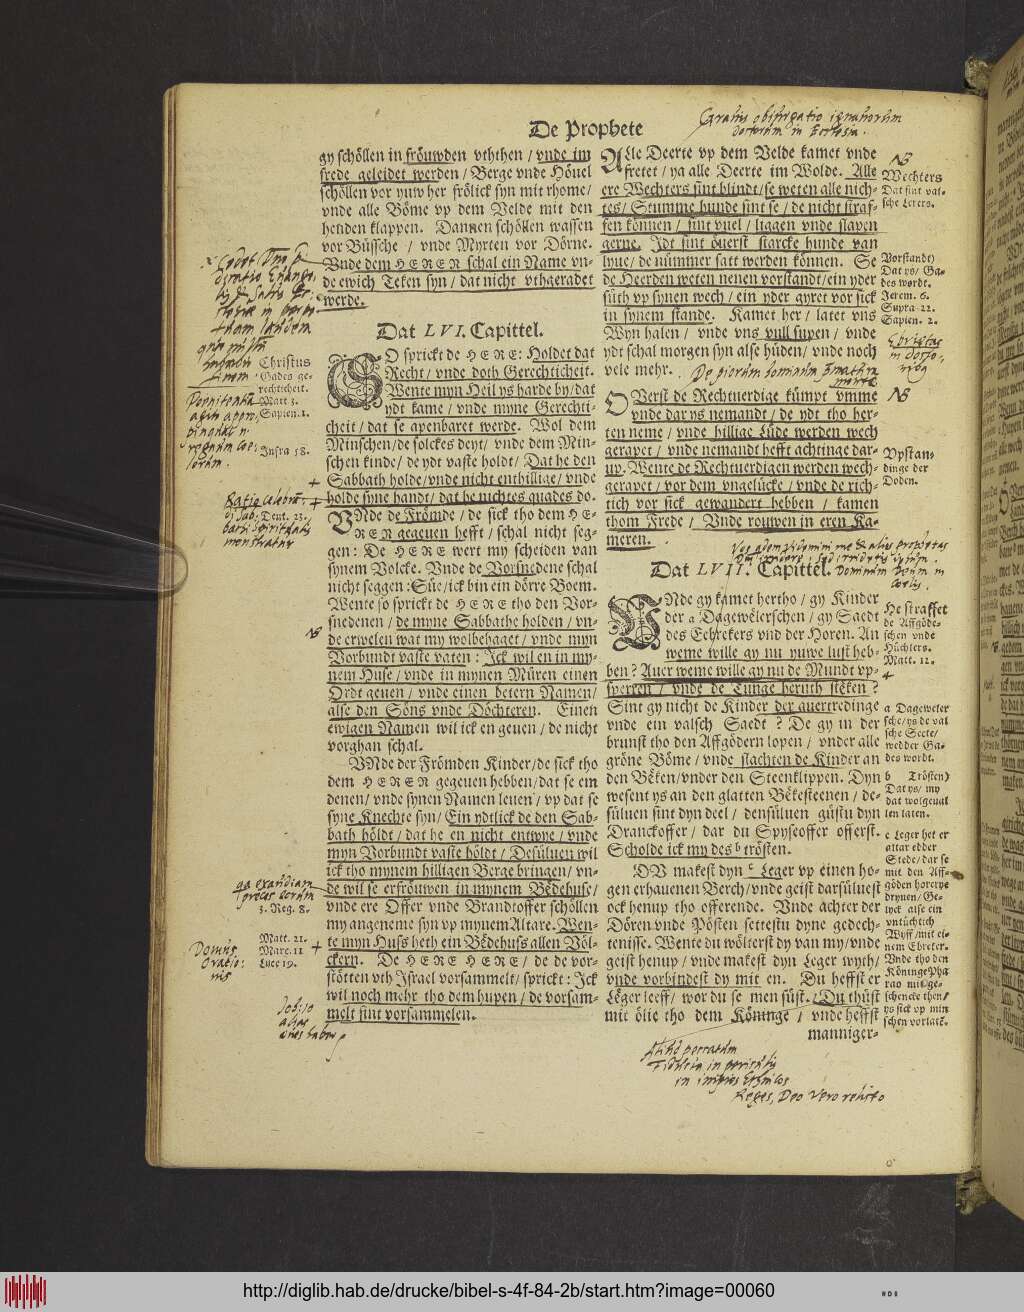 De Prophete
gy schöllen in fröuwden vththen / vnde im
frede geleidet werden / Berge vnde Höuel
schöllen vor yuw her frölick syn mit rhome /
vnde alle Böme vp dem Velde mit den
henden klappen. Dannen schöllen wassen
vor Büssche / vnde Myrten vor Dörne.
Vnde dem HEREN schal ein Name vn-
de ewich Teken syn / dat nicht vthgeradet
werde.
Dat LVI. Capittel.
SO sprickt de HERE: Holdet dat
Recht / vnde doth Gerechticheit.
Wente myn Heil ys harde by / dat
ydt kame / vnde myne Gerechti-
cheit / dat se apenbaret werde. Wol dem
Minschen / de solckes deyt / vnde dem Min-
schen kinde / de ydt vaste holdt / Dat he den
Sabbath holde / vnde nicht enthillige / vnde
holde syne handt / dat he nichtes quades do.
VNde de Frömde / de sick tho dem HE-
REN gegeuen hefft / schal nicht seg-
gen: De HERE wert my scheiden van
synem Volcke. Vnde de Vorsnedene schal
nicht seggen: Süe / ick bin ein dörre Boem.
Wente so sprickt de HERE tho den Vor-
snedenen / de myne Sabbathe holden / vn-
de erwelen wat my wolbehaget / vnde myn
Vorbundt vaste vaten: Ick wil en in my-
nem Huse / vnde in mynen Müren einen
Ordt geuen / vnde einen betern Namen /
alse den Söns vnde Döchteren. Einen
ewigen Namen wil ick en geuen / de nicht
vorghan schal.
VNde der Frömden Kinder / de sick tho
dem HEREN gegeuen hebben / dat se em
denen / vnde synen Namen leuen / vp dat se
syne Knechte syn / Ein ydtlick de den Sab-
bath höldt / dat he en nicht entwye / vnde
myn Vorbundt vaste höldt / Desüluen wil
ick tho mynem hilligen Berge bringen / vn-
de wil se erfröuwen in mynem Bedehuse /
vnde ere Offer vnde Brandtoffer schöllen
my angeneme syn vp mynem Altare. Wen-
te myn Huss heth ein Bedehuss allen Völ-
ckern. De HERE HERE / de de vor-
stötten vth Israel vorsammelt / sprickt: Ick
wil noch mehr tho dem hupen / de vorsam-
melt sint vorsammelen.
Christus
Gades ge-
rechticheit.
Matt 3.
Sapien. 1.
Infra 58.
Deut. 23.
3. Reg. 8.
Matt. 21.
Marc. 11
Luce 19.
Domus
Oratio-
nis
ALle Deerte vp dem Velde kamet vnde
fretet / ya alle Deerte im Wolde. Alle
ere Wechters sint blindt / se weten alle nich-
tes / Stumme hunde sint se / de nicht straf-
fen können / sint vuel / liggen vnde slapen
gerne. Idt sint öuerst starcke hunde van
lyue / de nümmer satt werden können. Se
de Heerden weten nenen vorstandt / ein yder
süth vp synen wech / ein yder gyret vor sick
in synem stande. Kamet her / latet vns
Wyn halen / vnde vns vull supen / vnde
ydt schal morgen syn alse hüden / vnde noch
vele mehr.
OVerst de Rechtuerdige kümpt vmme
vnde dar ys nemandt / de ydt tho her-
ten neme / vnde hillige Lüde werden wech
gerapet / vnde nemandt hefft achtinge dar-
up. Wente de Rechtuerdigen werden wech-
gerapet / vor dem vngelücke / vnde de rich-
tich vor sick gewandert hebben / kamen
thom Frede / Vnde rouwen in eren Ka-
meren.
Dat LVII. Capittel.
VNde gy kamet hertho / gy Kinder
der a Dagewelerschen / gy Saedt
des Eebrekers vnd der Horen. An
weme wille gy nu yuwe lust heb-
ben? Auer weme wille gy nu de Mundt vp-
sperren / vnde de Tunge heruth steken?
Sint gy nicht de Kinder der auertredinge
vnde ein valsch Saedt? De gy in der
brunst tho den Affgödern lopen / vnder alle
gröne Böme / vnde slachten de Kinder an
den Beken / vnder den Steenklippen. Dyn
wesent ys an den glatten Bekesteenen / de-
süluen sint dyn deel / densüluen güstu dyn
Dranckoffer / dar du Spyseoffer offerst.
Scholde ick my des b trösten.
DV makest dyn c Leger vp einen ho-
gen erhauenen Berch / vnde geist darsüluest
ock henup tho offerende. Vnde achter der
Dören vnde Pösten settestu dyne gedech-
tenisse. Wente du wölterst dy van my / vnde
geist henup / vnde makest dyn Leger wyth /
vnde vorbindest dy mit en. Du heffst er
Leger leeff / wor du se men süst. / Du thüst
mit ölie tho dem Köninge / vnde heffst
manniger-
NB
Wechters
Dat sint val-
sche Lerers.
Vorstandt)
Dat ys / Ga-
des wordt.
Jerem. 6.
Supra 22.
Sapien. 2.
NB
Vpstan-
dinge der
Doden.
He straffet
de Affgöde-
schen vnde
Hüchlers.
Matt. 12.
a Dageweler
sche / ys de val
sche Secte /
wedder Ga-
des wordt.
b Trösten)
Dat ys / my
dat wolgeual
len laten.
c Leger het er
altar edder
Stede / dar se
mit den Aff-
göden horerye
dryuen / Ge-
lyck alse ein
vntüchtich
Wyff / mit ei-
nem Ebreker.
Vnde tho den
Köninge Pha
rao mit ge-
schencke then /
ys sick vp min
schen vorlatē.
http://diglib.hab.de/drucke/bibel-s-4f-84-2b/start.htm?image=00060